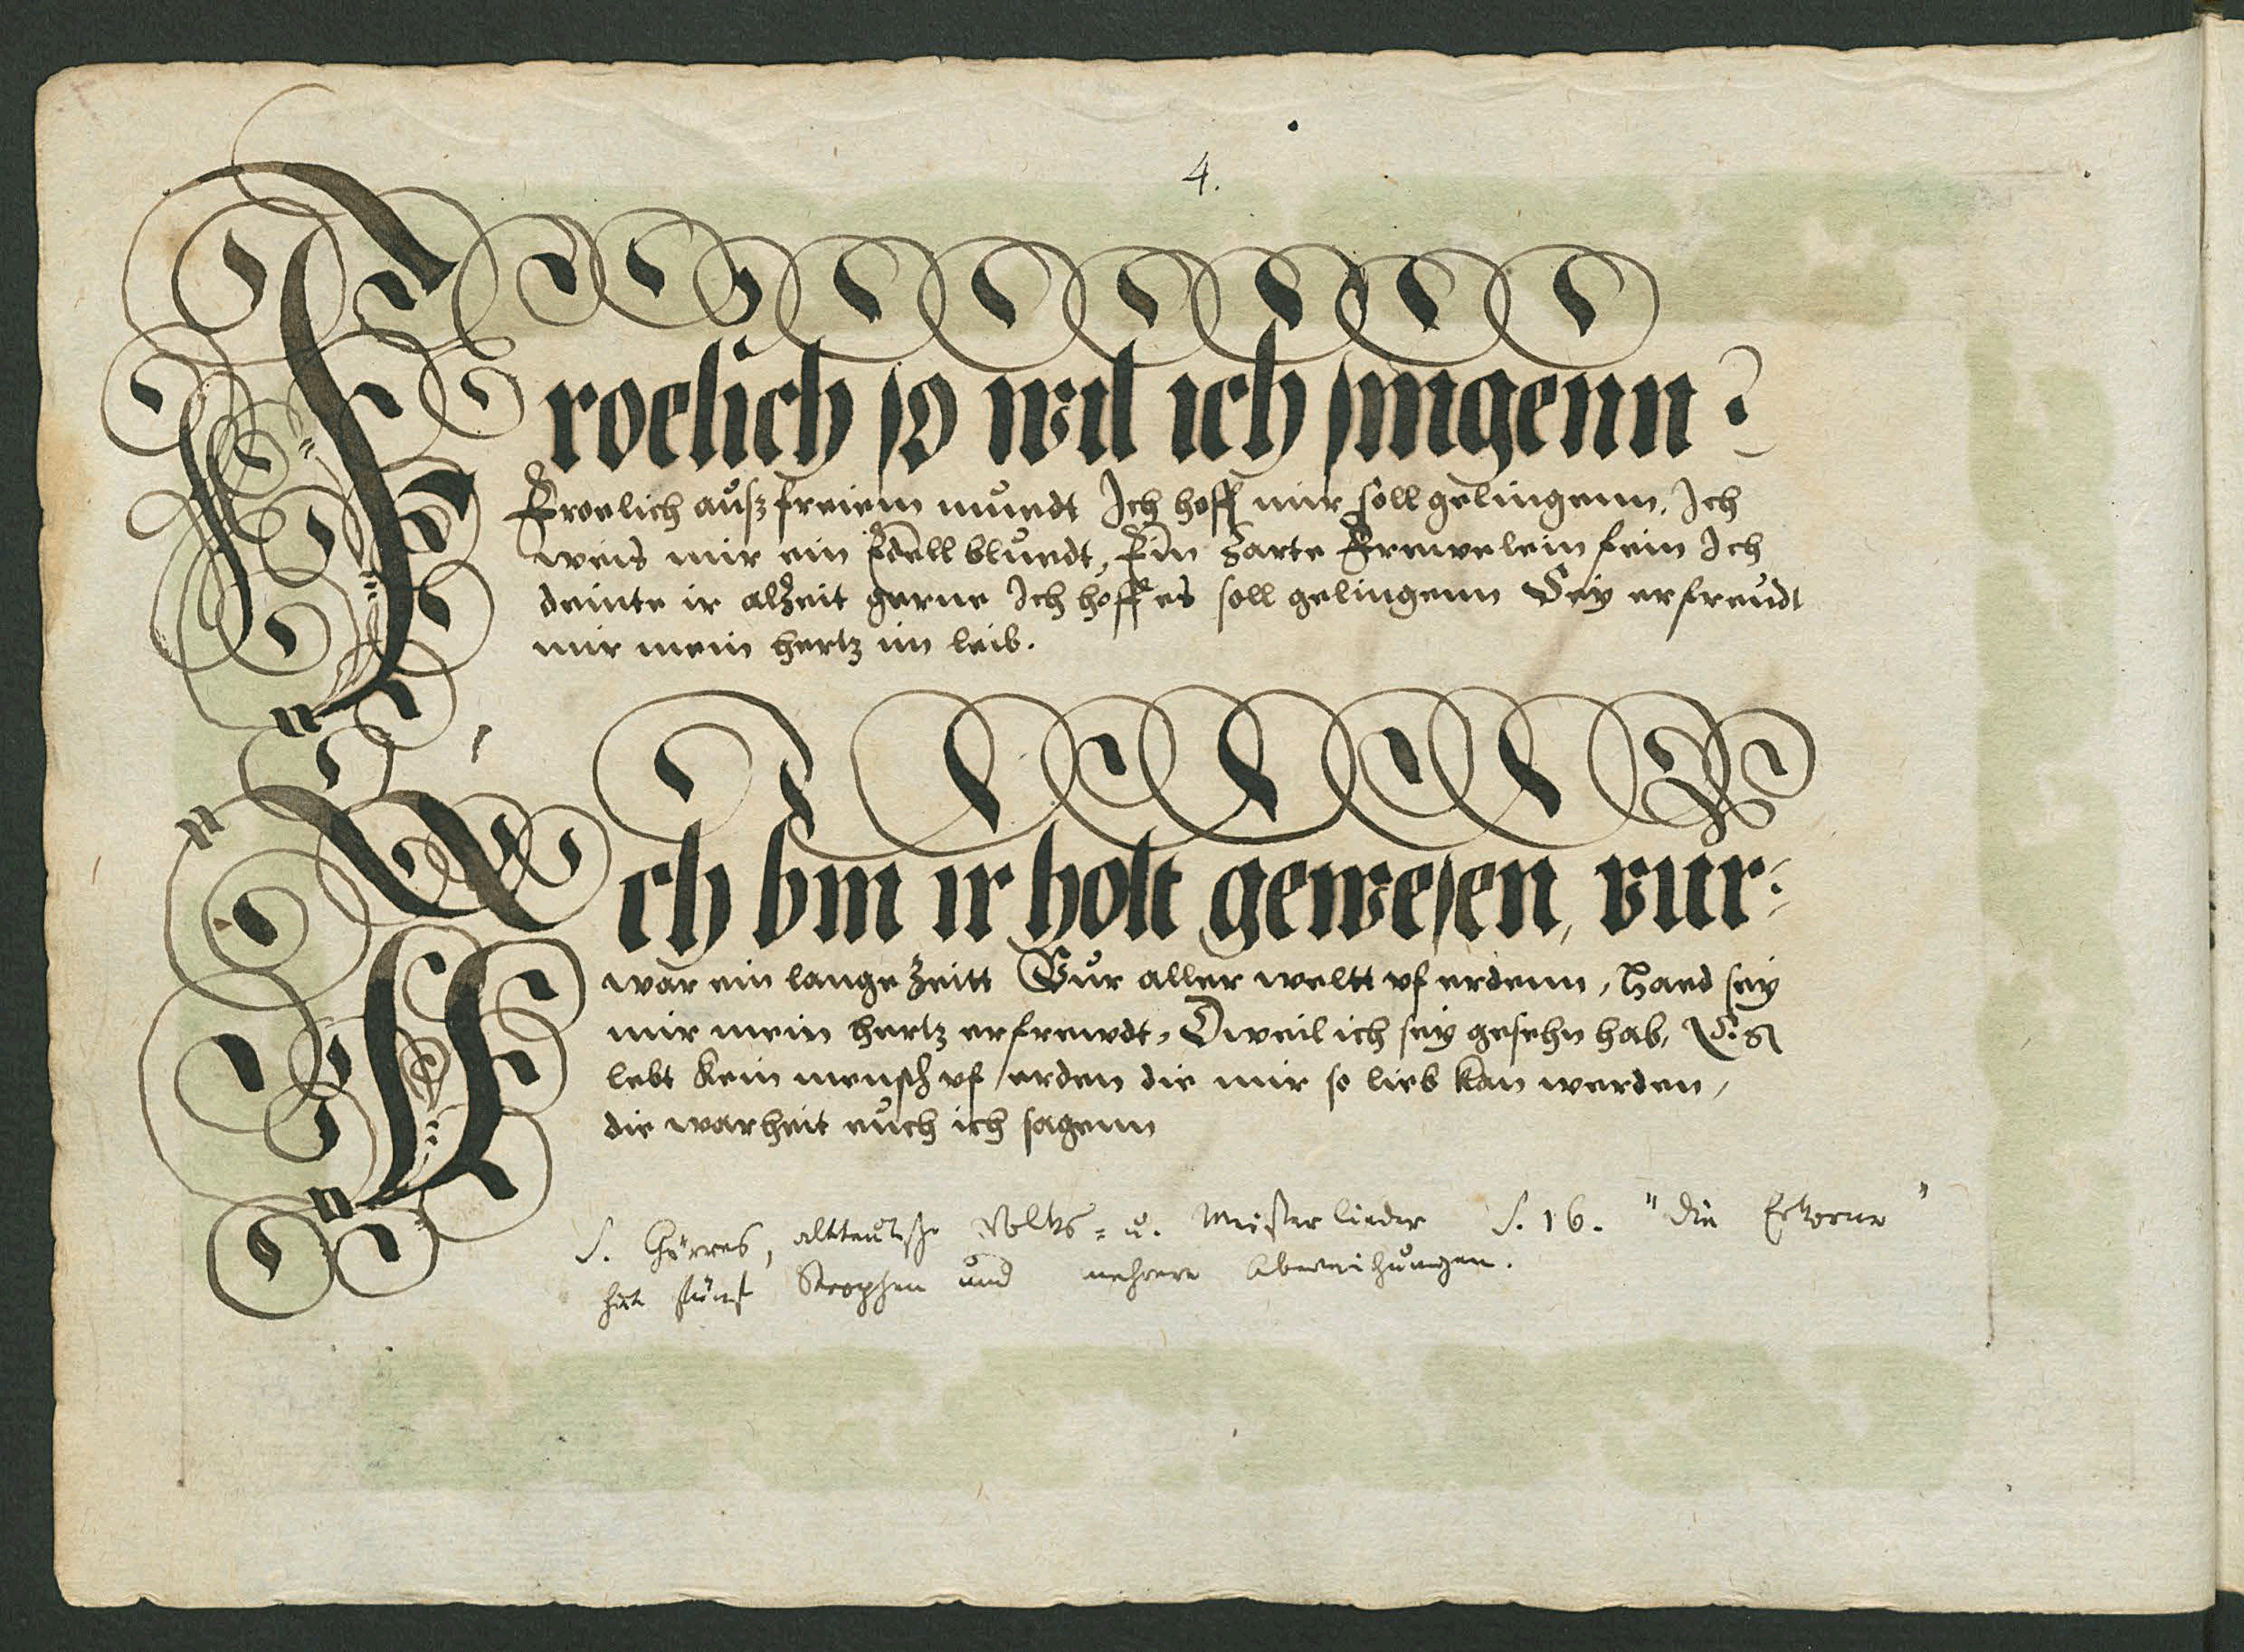 4.
Froelich so wil ich singenn
Froelich auß freiem mundt Ich hoff mir soll gelingenn, Ich
weis mir ein Edell blundt, Ein zarte Frewelein fein Ich
deinte ir alzeit gerne Ich hoff es soll gelingenn Sey erfreudt
mir mein hertz im leib.
Ich bin ir holt gewesen, vur-
war ein lange zeitt Vur aller weltt vf erdenn, Haed sey
mir mein hertz erfrewdt, Dweil ich sey gesehn hab, Es
lebt kein mensch vf erden die mir so lieb kan werden,
die warheit euch ich sagenn
S. Görres, altteutsche Volks- u. Meisterlieder S. 16. "Die Erkorne"
hat fünf Strophen und mehrere Abweichungen.